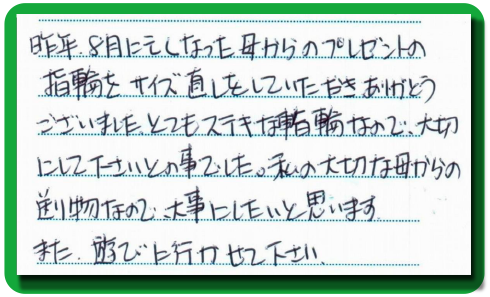 昨年、8月に亡くなった母からのプレゼントの
指輪をサイズ直しをしていただきありがとう
ございました。とてもステキな指輪なので、大切
にして下さいとの事でした。私の大切な母からの
送り物なので、大事にしたいと思います。
また、遊びに行かせて下さい。